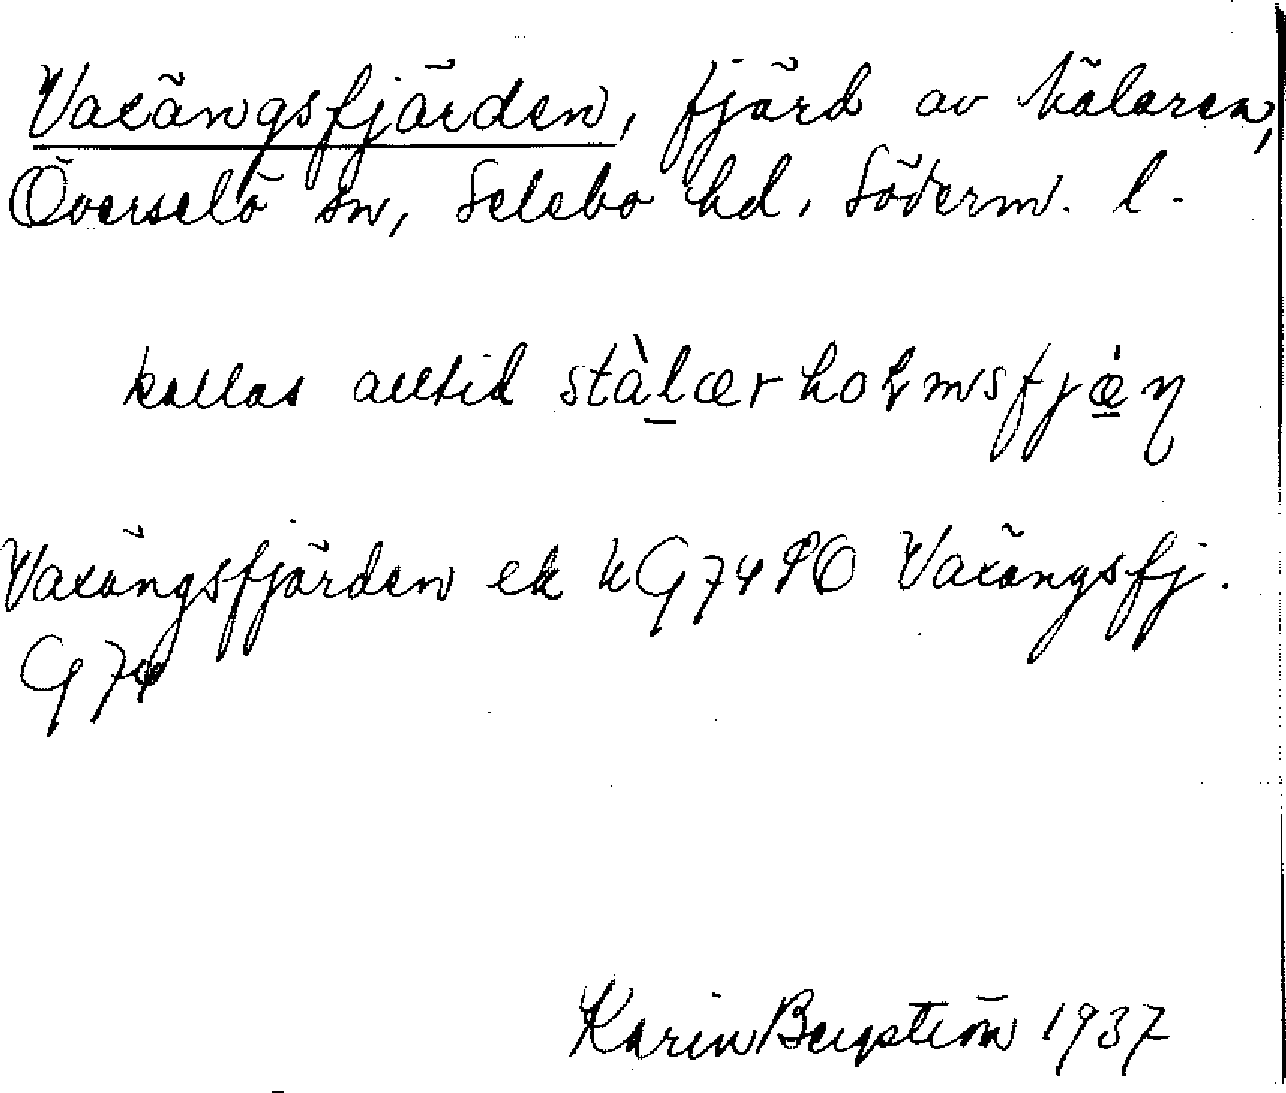 Vaxängsfjärden, fjärd av Mälaren,
Överselö sn, Selebo hd, Söderm. l.
kallas alltid stàlærholmsfjæ̀ṇ
Vaxängsfjärden ek kG74SO Vaxängsfj.
G74
Karin Bergström 1937